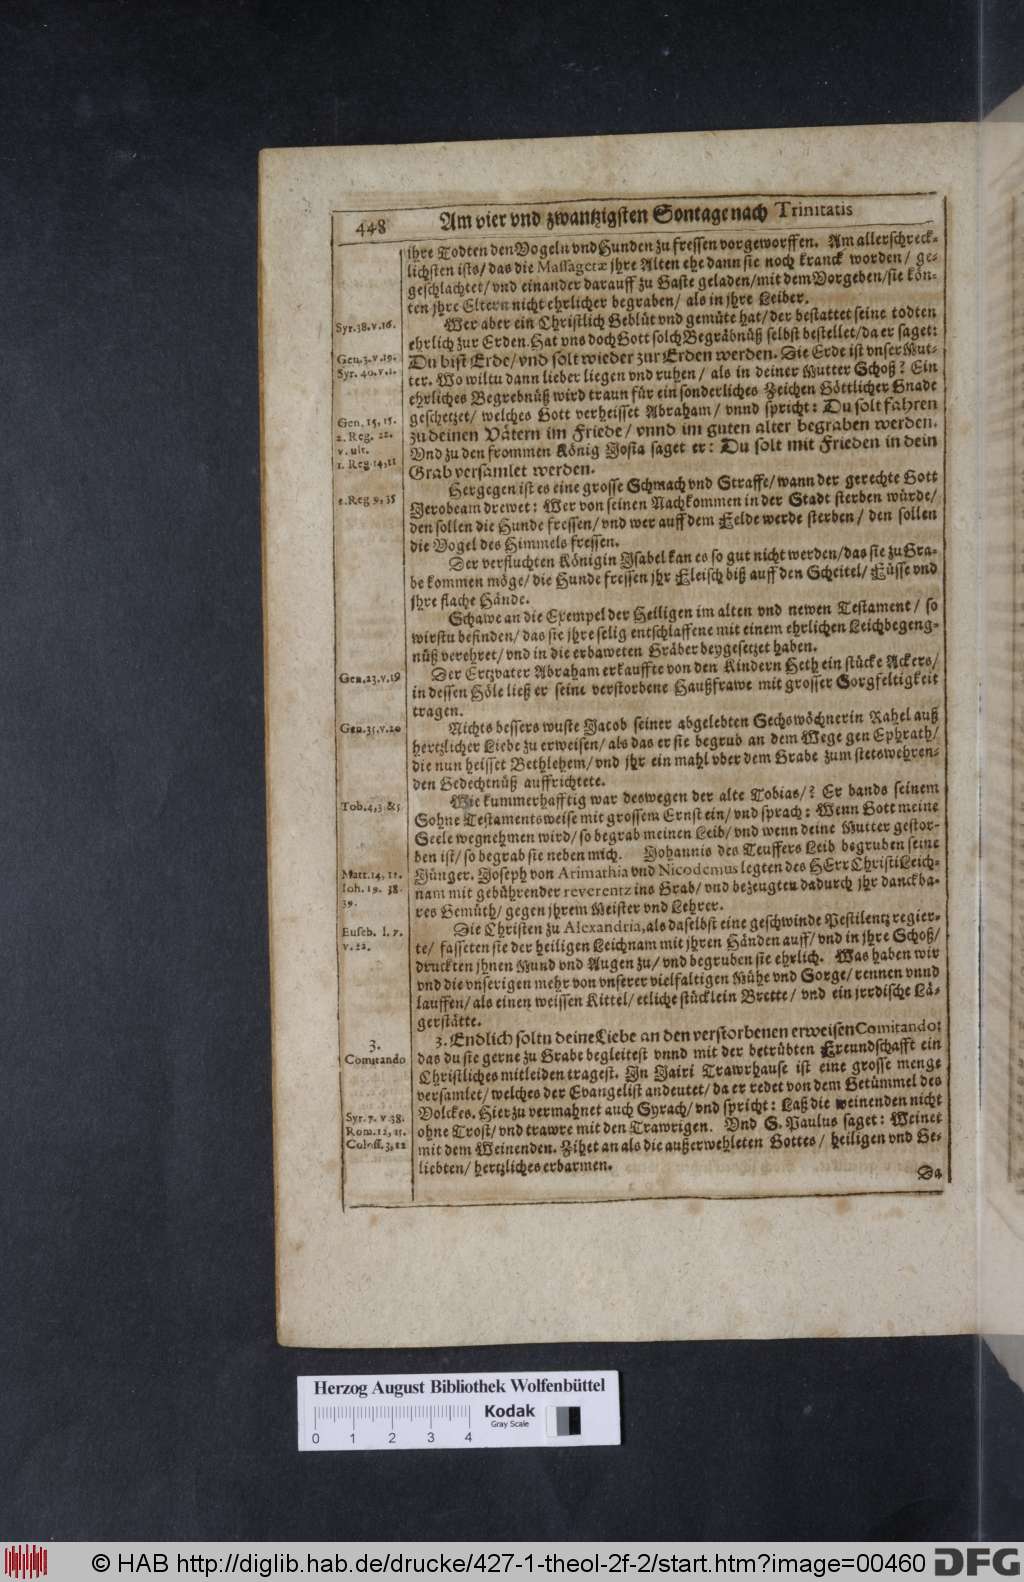 448 Am vier vnd zwantzigsten Sontage nach Trinitatis
ihre Todten den Vogeln vnd Hunden zu fressen vorgeworffen. Am allerschreck-
lichsten ists/ das die Massagetæ jhre Alten ehe dann sie noch kranck worden/ ge-
geschlachtet/ vnd einander darauff zu Gaste geladen/ mit dem Vorgeben/ sie kön-
ten jhre Eltern nicht ehrlicher begraben/ als in jhre Leiber.
Syr. 38. v. 16.
Wer aber ein Christlich Geblüt vnd gemüte hat/ der bestattet seine todten
ehrlich zur Erden. Hat vns doch Gott solch Begräbnüß selbst bestellet/ da er saget:
Gen. 3. v. 19.
Du bist Erde/ vnd solt wieder zur Erden werden. Die Erde ist vnser Mut-
Syr. 40. v. 1.
ter. Wo wiltu dann lieber liegen vnd ruhen/ als in deiner Mutter Schoß? Ein
ehrliches Begrebnüß wird traun für ein sonderliches Zeichen Göttlicher Gnade
Gen. 15, 15.
geschetzet/ welches Gott verheisset Abraham/ vnnd spricht: Du solt fahren
2. Reg. 22.
zu deinen Vätern im Friede/ vnnd im guten alter begraben werden.
v. ult.
Vnd zu den frommen König Josia saget er: Du solt mit Frieden in dein
1. Reg. 14, 11
Grab versamlet werden.
Hergegen ist es eine grosse Schmach vnd Straffe/ wann der gerechte Gott
2. Reg 9, 35
Jerobeam drewet: Wer von seinen Nachkommen in der Stadt sterben würde/
den sollen die Hunde fressen/ vnd wer auff dem Felde werde sterben/ den sollen
die Vogel des Himmels fressen.
Der verfluchten Königin Jsabel kan es so gut nicht werden/ das sie zu Gra-
be kommen möge/ die Hunde fressen jhr Fleisch biß auff den Scheitel/ Füsse vnd
jhre flache Hände.
Schawe an die Exempel der Heiligen im alten vnd newen Testament/ so
wirstu befinden/ das sie jhre selig entschlaffene mit einem ehrlichen Leichbegeng-
nüß verehret/ vnd in die erbaweten Gräber beygesetzet haben.
Gen. 23. v. 19
Der Ertzvater Abraham erkauffte von den Kindern Heth ein stücke Ackers/
in dessen Höle ließ er seine verstorbene Haußfrawe mit grosser Sorgfeltigkeit
tragen.
Gen. 35. v. 20
Nichts bessers wuste Jacob seiner abgelebten Sechswöchnerin Rahel auß
hertzlicher Liebe zu erweisen/ als das er sie begrub an dem Wege gen Ephrath/
die nun heisset Bethlehem/ vnd jhr ein mahl vber dem Grabe zum stetswehren-
den Gedechtnüß auffrichtete.
Tob. 4, 3. & 5
Wie kummerhafftig war deswegen der alte Tobias/? Er bands seinem
Sohne Testamentsweise mit grossem Ernst ein/ vnd sprach: Wenn Gott meine
Seele wegnehmen wird/ so begrab meinen Leib/ vnd wenn deine Mutter gestor-
ben ist/ so begrab sie neben mich. Johannis des Teuffers Leib begruben seine
Matt. 14, 12.
Jünger. Joseph von Arimathia vnd Nicodemus legten des HErr Christi Leich-
Ioh. 19. 38.
nam mit gebührender reverentz ins Grab/ vnd bezeugten dadurch jhr danckba-
39.
res Gemüth/ gegen jhrem Meister vnd Lehrer.
Euseb. l. 7.
Die Christen zu Alexandria, als daselbst eine geschwinde Pestilentz regier-
v. 22.
te/ fasseten sie der heiligen Leichnam mit jhren Händen auff/ vnd in jhre Schoß/
druckten jhnen Mund vnd Augen zu/ vnd begruben sie ehrlich. Was haben wir
vnd die vnserigen mehr von vnserer vielfaltigen Mühe vnd Sorge/ rennen vnnd
lauffen/ als einen weissen Kittel/ etliche stücklein Brette/ vnd ein jrrdische Lä-
gerstätte.
3.
3. Endlich soltu deine Liebe an den verstorbenen erweisen Comitando:
Comitando
das du sie gerne zu Grabe begleitest vnnd mit der betrübten Freundschafft ein
Christliches mitleiden tragest. In Jairi Trawrhause ist eine grosse menge
versamlet/ welches der Evangelist andeutet/ da er redet von dem Getümmel des
Syr. 7. v. 38.
Volckes. Hierzu vermahnet auch Syrach/ vnd spricht: Laß die weinenden nicht
Rom. 12, 15.
ohne Trost/ vnd trawre mit den Trawrigen. Vnd S. Paulus saget: Weinet
Coloss. 3, 12
mit dem Weinenden. Zihet an als die außerwehleten Gottes/ heiligen vnd Ge-
liebten/ hertzliches erbarmen.
Da
Herzog August Bibliothek Wolfenbüttel
Kodak
Gray Scale
0 1 2 3 4
© HAB http://diglib.hab.de/drucke/427-1-theol-2f-2/start.htm?image=00460
DFG